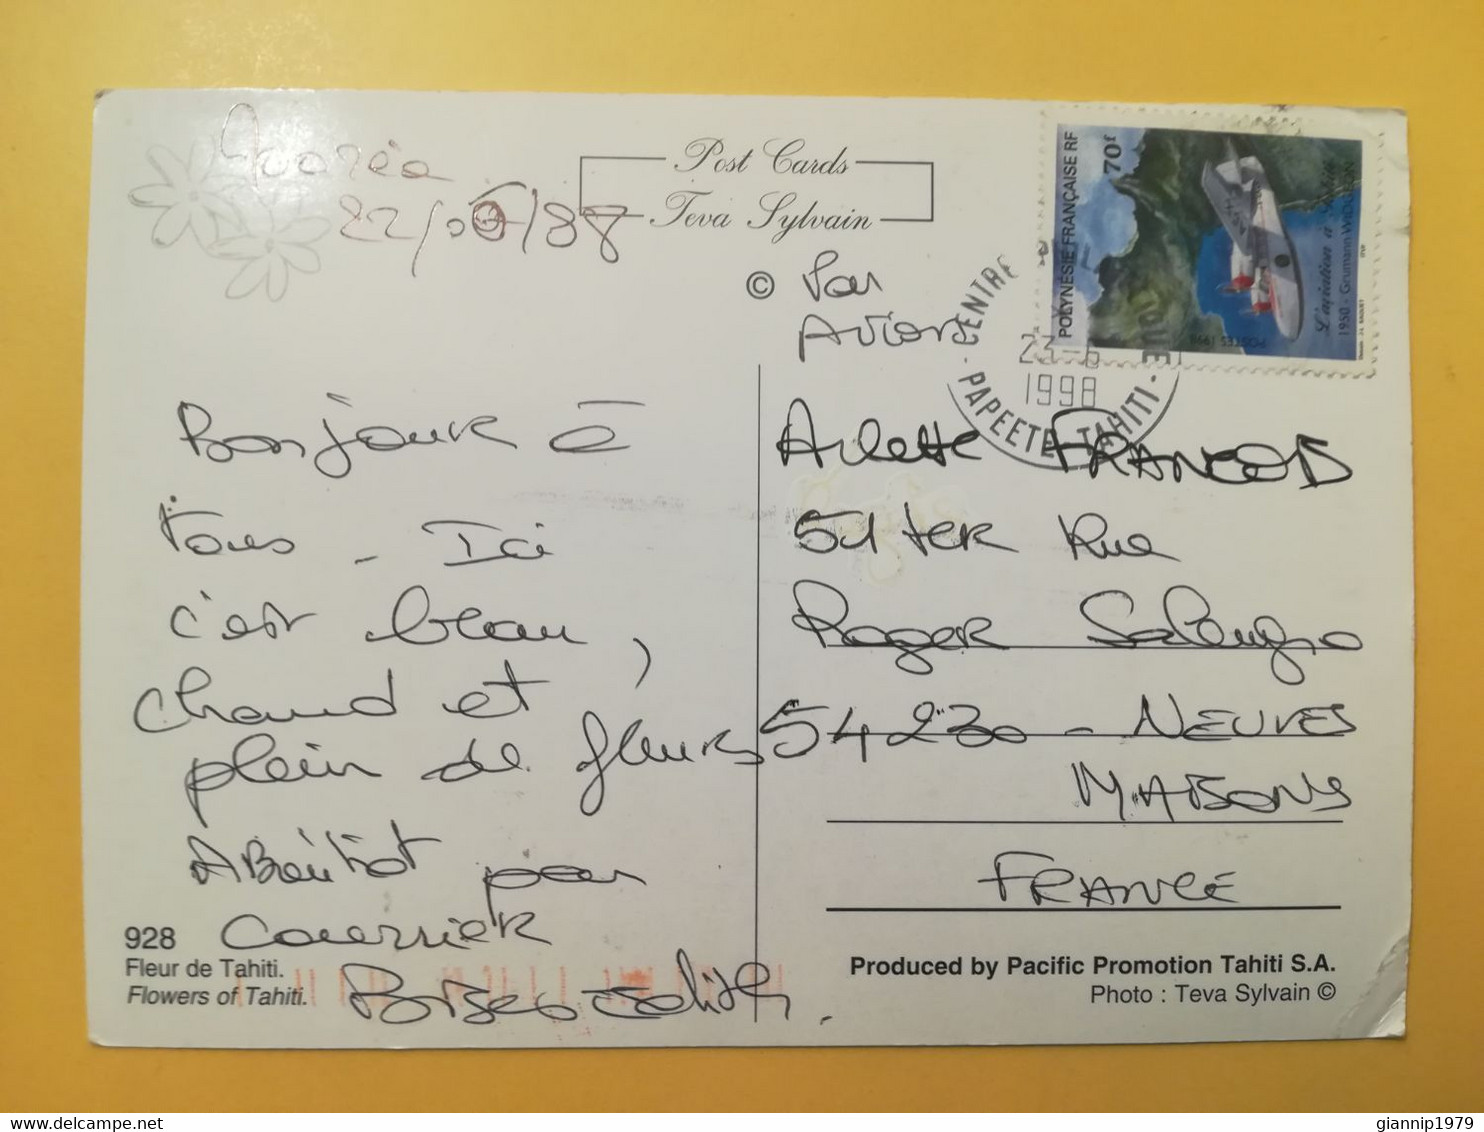 Mooréa
22/06/98
Post Cards
Teva Sylvain
©
Par
Avion
POLYNÉSIE FRANÇAISE RF
70F
L'aviation à Tahiti
1950 - Grumann WIDGEON
POSTES 1998
CENTRE
23-6
1998
PAPEETE - TAHITI
Bonjour à
tous - Ici
c'est beau,
chaud et
plein de fleurs
A Bientôt par
courrier
Bises Edith.
Arlette FRANCOIS
51 ter Rue
Roger Salengro
54230 - NEUVES
MAISONS
FRANCE
928
Fleur de Tahiti.
Flowers of Tahiti.
Produced by Pacific Promotion Tahiti S.A.
Photo : Teva Sylvain ©
giannip1979